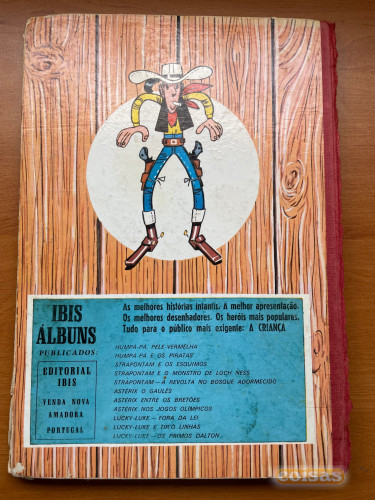 IBIS
ÁLBUNS
PUBLICADOS:
EDITORIAL
IBIS
VENDA NOVA
AMADORA
PORTUGAL
As melhores histórias infantis. A melhor apresentação.
Os melhores desenhadores. Os heróis mais populares.
Tudo para o público mais exigente: A CRIANÇA
HUMPÁ-PÁ, PELE-VERMELHA
HUMPÁ-PÁ E OS PIRATAS
STRAPONTAM E OS ESQUIMOS
STRAPONTAM E O MONSTRO DE LOCH NESS
STRAPONTAM—A REVOLTA NO BOSQUE ADORMECIDO
ASTÉRIX O GAULÊS
ASTÉRIX ENTRE OS BRETÕES
ASTÉRIX NOS JOGOS OLÍMPICOS
LUCKY-LUKE—FORA DA LEI
LUCKY-LUKE E TIFO LINHAS
LUCKY-LUKE—OS PRIMOS DALTON
coisas